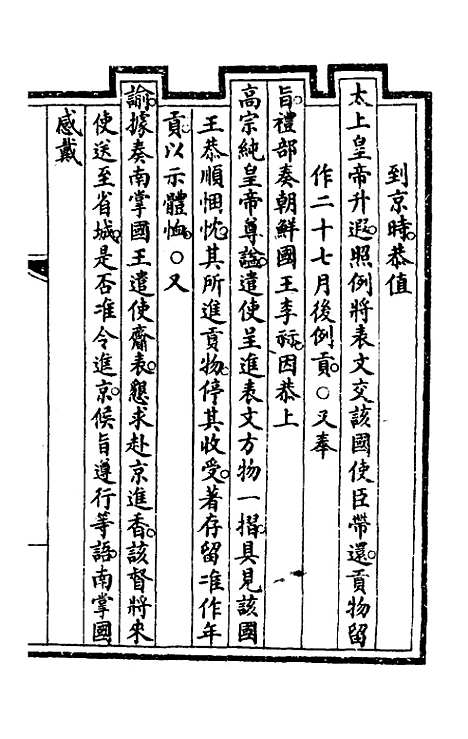 到京時。恭值
太上皇帝升遐。照例將表文交該國使臣帶還。貢物留
作二十七月後例貢。○又奉
旨。禮部奏朝鮮國王李祘。因恭上
高宗純皇帝尊諡。遣使呈進表文方物一摺。具見該國
王恭順悃忱。其所進貢物。停其收受。著存留准作年
貢。以示體恤。○又
諭。據奏南掌國王遣使齎表。懇求赴京進香。該督將來
使送至省城。是否准令進京。候旨遵行等語。南掌國
感戴